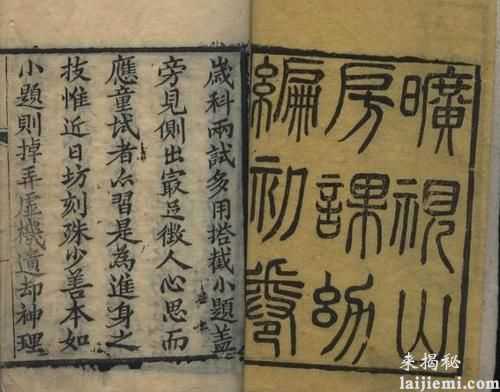 曠視山
房課幼
編初
歲科兩試多用搭截小題蓋
旁見側出㝡足徵人心思而
應童試者亦習是為進身之
技惟近日坊刻殊少善本如
小題則掉弄虛機遺却神理
来揭秘
laijiemi.com